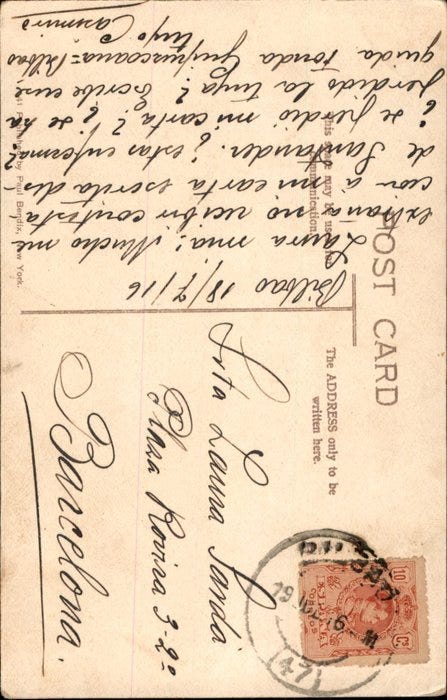 POST CARD
This space may be used for
communication.
The ADDRESS only to be
written here.
Published by Paul Bendix, New York.
Bilbao 18/7/16
Laura mia: Mucho me
extraña no recibir contesta-
con á mi carta escrita des-
de Santander. ¿estas enferma?
¿se perdió mi carta? ¿se ha
perdido la tuya? Escribe ense
guida fonda Guipuzcoana=Bilbao
tuyo
Casimiro
Srta Laura Sardá
Plaza Rovira 3-2º
Barcelona.
BILBAO
19 JUL 16
(47)
10 Cs